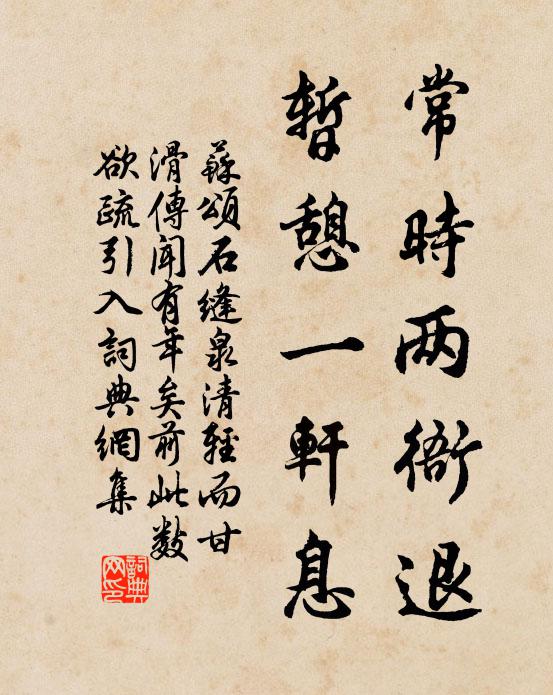 常時兩衙退
暫憩一軒息
蘇頌石縫泉清輕而甘
滑傳聞有年矣前此數
欲疏引入詞典網集
詞典網印